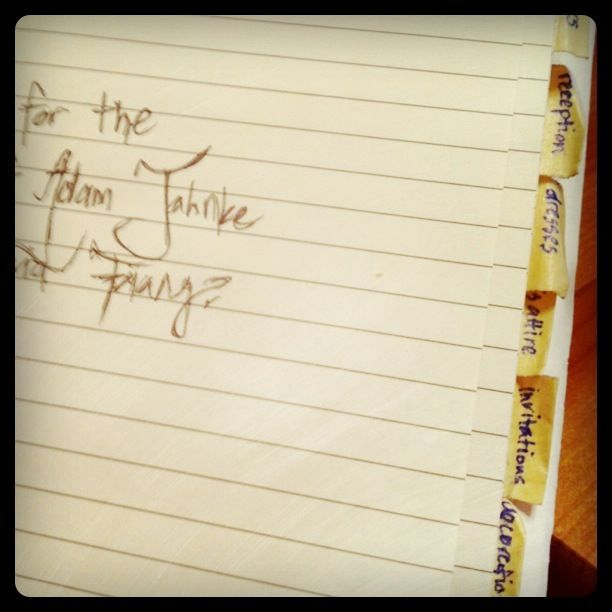 for the
Adam Jahnke
reception
dresses
s attire
invitations
decoratio